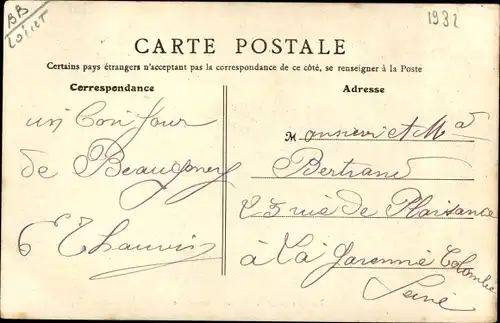 BB
LOIRET
1932
CARTE POSTALE
Certains pays étrangers n'acceptant pas la correspondance de ce côté, se renseigner à la Poste
Correspondance
Adresse
un Bonjour
de Beaugency
E Thauvin
Monsieur et Md
Bertrand
25 rue de Plaisance
à La Garenne Colombe
Seine